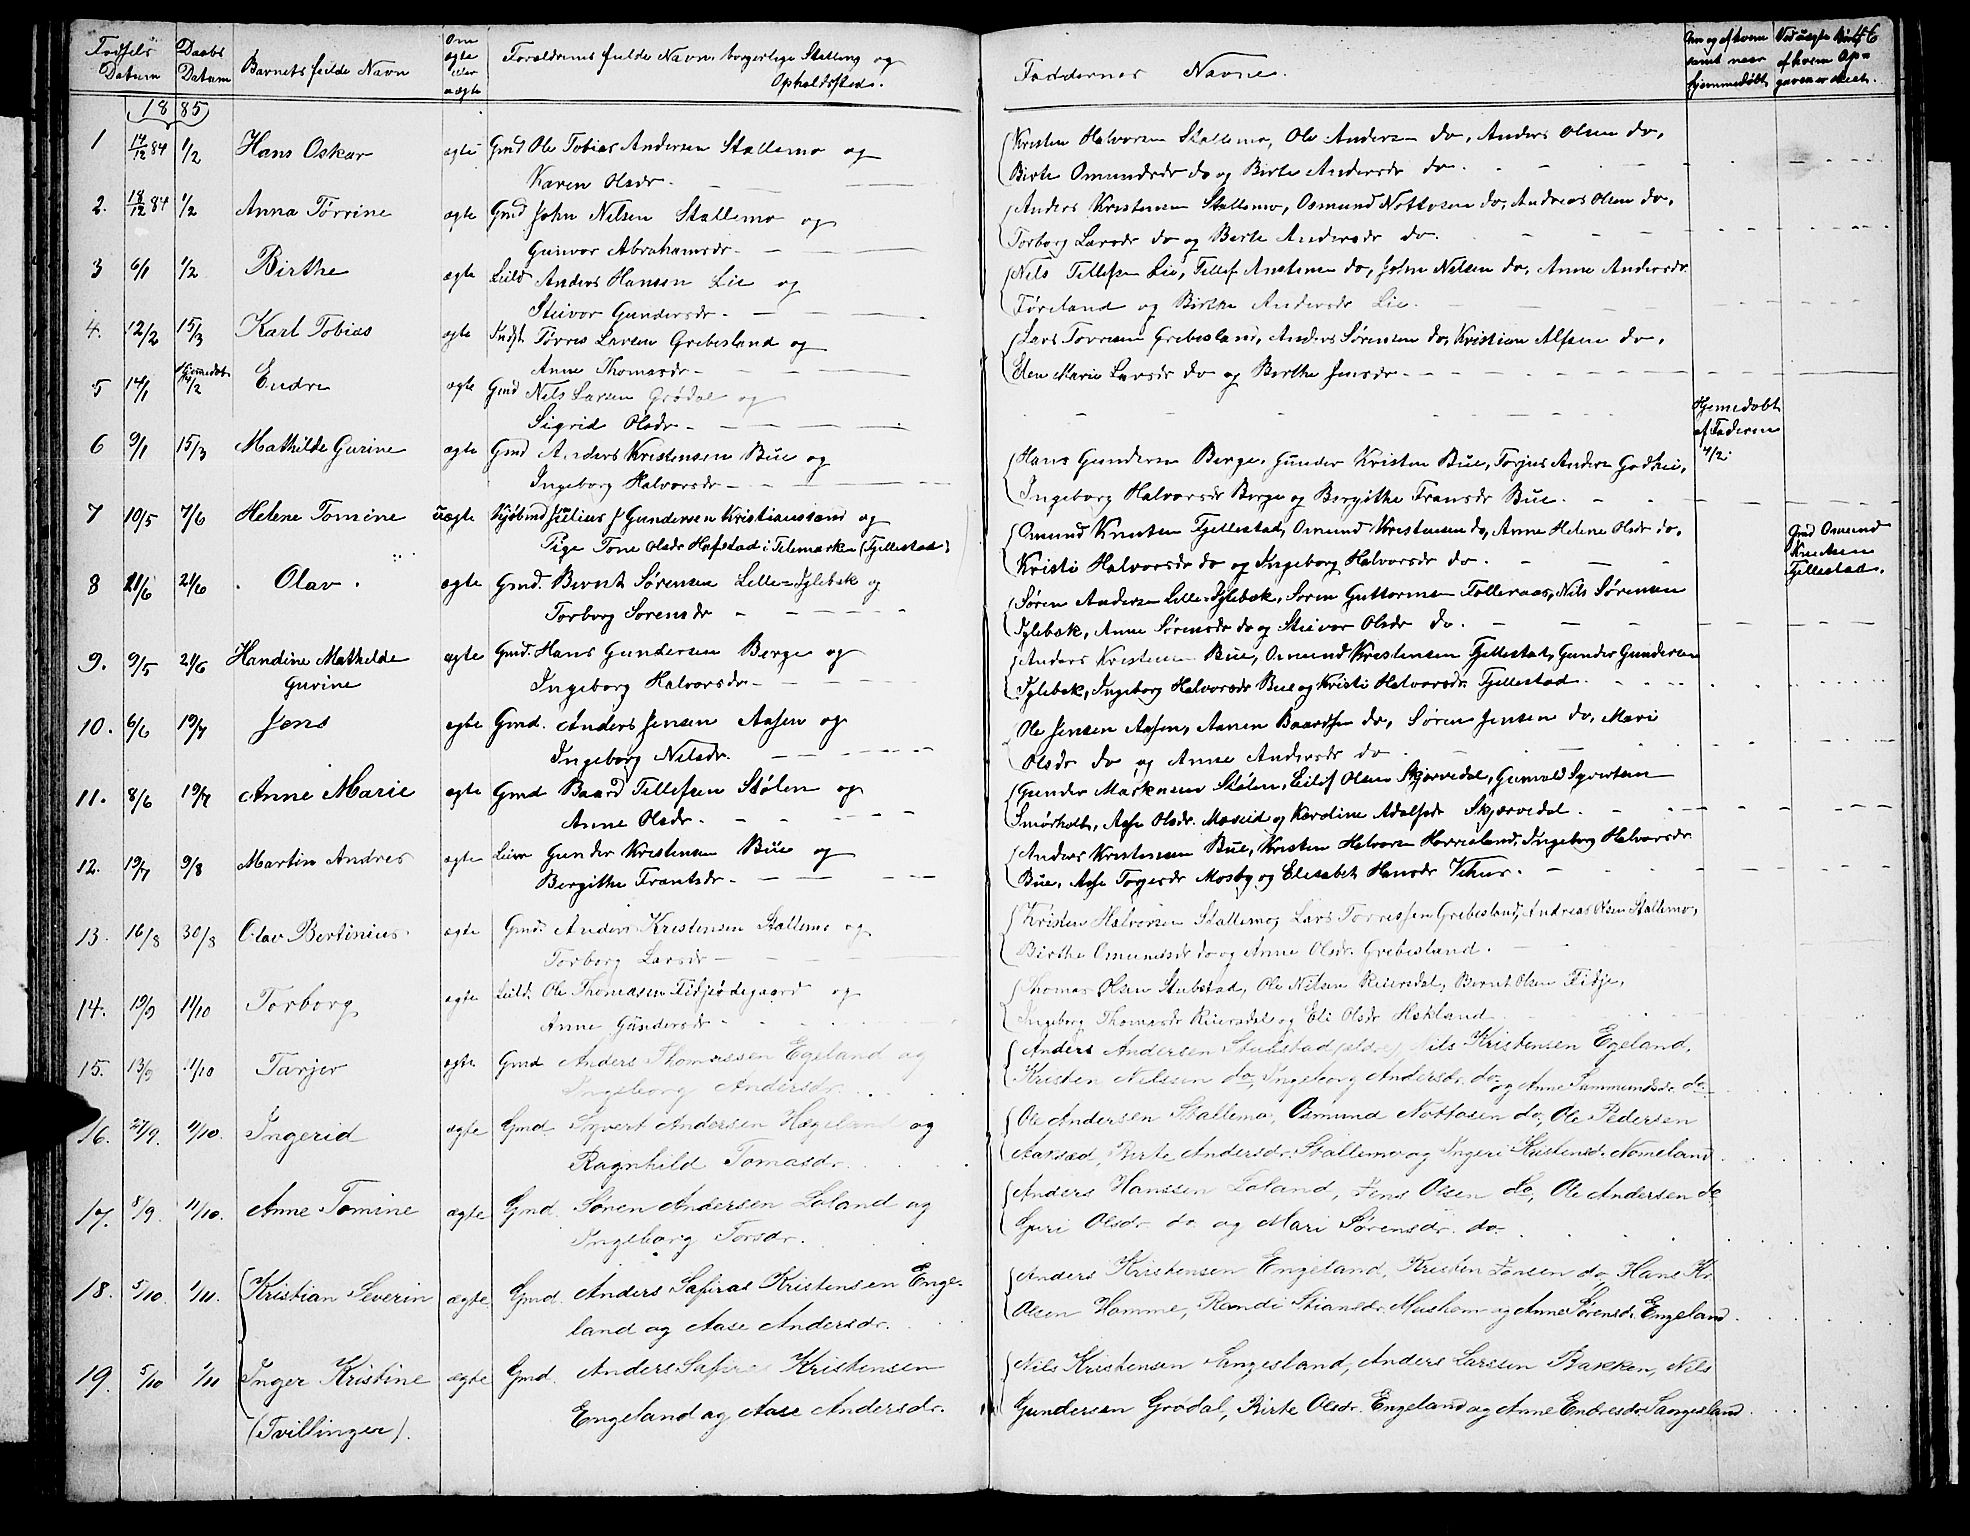 Fødsels Datum | Daabs Datum | Barnets fulde Navn | Om ægte eller uægte | Forældrenes fulde Navn, borgerlige Stilling og Opholdssted. | Faddernes Navne. | samt naar hjemmedøbt | Ved uægte Børn, af hvem Opgaven er skeet. | 46
1885
1 | 14/12 84 | 1/2 | Hans Oskar | ægte | Gmd Ole Tobias Andersen Stallemo og | Kristen Halvorsen Stallemo, Ole Andersen do, Anders Olsen do,
Karen Olsdr. | Birte Omundsdr do og Birte Andersdr do.
2. | 18/12 84 | 1/2 | Anna Tørrine | ægte | Gmd John Nilsen Stallemo og | Anders Kristensen Stallemo, Osmund Nottosen do, Andreas Olsen do,
Gunvor Abrahamsdr. | Torborg Larsdr do og Berte Andersdr do.
3 | 6/1 | 1/2 | Birthe | ægte | Leild Anders Hansen Lie og | Nils Tellefsen Lie, Tellef Anstensen do, John Nilsen do, Anne Andersdr
Stuvor Gundersdr. | Føreland og Birthe Andersdr Lie.
4. | 12/2 | 15/3 | Karl Tobias | ægte | Indst Tørres Larsen Grebesland og | Lars Torresen Grebesland, Anders Sørensen do, Kristian Alfsen do,
Anne Thomasdr | Elen Marie Larsdr do og Berthe Jensdr.
5 | 14/1 | Hjemmedøbt 4/2 | Endre | ægte | Gmd Nils Larsen Grødal og
Sigrid Olsdr. | Hjemedøbt af Faderen 4/2.
6 | 9/1 | 15/3 | Mathilde Gurine | ægte | Gmd Anders Kristensen Bue og | Hans Gundersen Berge, Gunder Kristen Bue, Torjus Anders Godhei,
Ingeborg Halvorsdr | Ingeborg Halvorsdr Berge og Bergithe Fransdr Bue.
7 | 10/5 | 7/6 | Helene Tomine | uægte | Kjøbmd Julius J Gundersen Kristianssand og | Omund Knutsen Fjellestad, Omund Kristensen do, Anne Helene Olsdr do, | Gmd Osmund
Pige Tone Olsdr Hafstad i Telemarken (Fjellestad) | Kristi Halvorsdr do og Ingeborg Halvorsdr do. | Knutsen Fjellestad.
8 | 21/6 | 21/6 | Olav. | ægte | Gmd. Bernt Sørensen Lille-Iglebæk og | Søren Andersen Lille-Iglebæk, Soren Guttormsen Folleraas, Nils Sørensen
Torborg Sorensdr | Iglebæk, Anne Sørensdr do og Stuvor Olsdr do.
9. | 9/5 | 21/6 | Handine Mathilde | ægte | Gmd. Hans Gundersen Berge og | Anders Kristensen Bue, Omund Kristensen Fjellestad, Gunder Gundersen
Gurine | Ingeborg Halvorsdr. | Iglebæk, Ingeborg Halvorsdr Bue og Kristi Halvorsdr. Fjellestad.
10. | 6/6 | 19/7 | Jens | ægte | Gmd. Anders Jensen Aasen og | Ole Jensen Aasen, Aanen Baardsen do, Søren Jensen do, Mari
Ingeborg Nilsdr. | Olsdr do og Anne Andersdr do.
11. | 8/6 | 19/7 | Anne Marie | ægte | Gmd Baard Tellefsen Stølen og | Gunder Markusen Stølen, Eilef Olsen Skjærvedal, Gunvald Syvertsen
Anne Olsdr. | Smørholt, Aase Olsdr. Moseid og Kardine Adolfsdr Skjærvedal.
12. | 19/7 | 9/8 | Martin Andres | ægte | Leier Gunder Kristensen Bue og | Anders Kristensen Bue, Kristen Halvorsen Horrisland, Ingeborg Halvorsdr
Bergithe Frantsdr. | Bue, Aase Torjesdr Mosby og Elisabet Hansdr Vehus.
13. | 16/8 | 30/8 | Olav Bertinius. | ægte | Gmd. Anders Kristensen Stallemo og | Kristen Halvorsen Stallemo, Lars Torressen Grebesland, Andreas Olsen Stallemo,
Torborg Larsdr | Birthe Omundsdr do og Anne Olsdr. Grebesland.
14. | 19/9 | 11/10 | Torborg | ægte | Leild. Ole Thomasen Fidjeødegaard og | Thomas Olsen Stubstad, Ole Nilsen Reiersdal, Bernt Olsen Fidje,
Anne Gundersdr. | Ingeborg Thomasdr Reiersdal og Eli Olsdr Hekland.
15. | 13/9 | 11/10 | Tarjer | ægte | Gmd Anders Thomassen Egeland og | Anders Andersen Stubstad (eldre), Nils Kristensen Egeland,
Ingeborg Andersdr. | Kristen Nilssen do, Ingeborg Andersdr. do og Anne Sammundsdr. do
16. | 27/9. | 11/10. | Ingerid | ægte | Gmd. Syvert Andersen Hægeland og | Ole Andersen Stallemo, Osmund Nottosen do, Ole Pedersen
Ragnhild Tomasdr. | Aaksæd, Birte Andersdr. Stallemo og Ingeri Kristensd. Nomeland
17. | 8/9. | 11/10. | Anne Tomine | ægte | Gmd. Søren Andersen Loland og | Anders Hanssen Loland, Jens Olsen do, Ole Andersen do,
Ingeborg Torsdr. | Guri Olsdr. do og Mari Sørensdr. do.
18. | 5/10. | 1/11. | Kristian Severin | ægte | Gmd. Anders Safiras Kristensen Enge- | Anders Kristensen Engeland, Kristen Jensen do, Hans Kr.
land og Aase Andersdr. | Olsen Homme, Randi Stiansdr. Mushom og Anne Sørensdr. Engeland.
19. | 5/10 | 1/11 | Inger Kristine | ægte | Gmd. Anders Safiras Kristensen | Nils Kristensen Sangesland, Anders Larssen Bakken, Nils
(Tvillinger). | Engeland og Aase Andersdr. | Gundersen Grødal, Birte Olsdr. Engeland og Anne Endresdr. Sangesland.